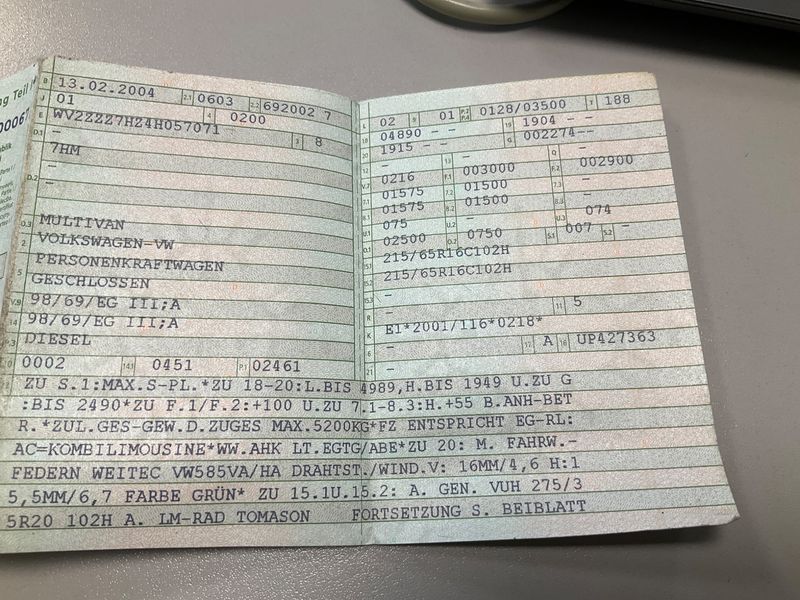 13.02.2004 2.1 0603 2.2 692002 7
01 4 0200
WV2ZZZ7HZ4H057071 3 8
-
7HM
-
-
MULTIVAN
VOLKSWAGEN-VW
PERSONENKRAFTWAGEN
GESCHLOSSEN
98/69/EG III;A
98/69/EG III;A
DIESEL
0002 14.1 0451 P.1 02461
L 02 9 01 P.2 P.4 0128/03500 T 188
18 04890 - - 19 1904 - -
20 1915 - - G 002274--
12 - 13 - Q -
V.7 0216 F.1 003000 F.2 002900
7.1 01575 7.2 01500 7.3 -
8.1 01575 8.2 01500 8.3 -
U.1 075 U.2 - U.3 074
O.1 02500 O.2 0750 S.1 007 S.2 -
15.1 215/65R16C102H
15.2 215/65R16C102H
15.3 -
R - 11 5
K E1*2001/116*0218*
6 - 17 A 16 UP427363
21 -
ZU S.1:MAX.S-PL.*ZU 18-20:L.BIS 4989,H.BIS 1949 U.ZU G
:BIS 2490*ZU F.1/F.2:+100 U.ZU 7.1-8.3:H.+55 B.ANH-BET
R.*ZUL.GES-GEW.D.ZUGES MAX.5200KG*FZ ENTSPRICHT EG-RL:
AC=KOMBILIMOUSINE*WW.AHK LT.EGTG/ABE*ZU 20: M. FAHRW.-
FEDERN WEITEC VW585VA/HA DRAHTST./WIND.V: 16MM/4,6 H:1
5,5MM/6,7 FARBE GRÜN* ZU 15.1U.15.2: A. GEN. VUH 275/3
5R20 102H A. LM-RAD TOMASON FORTSETZUNG S. BEIBLATT